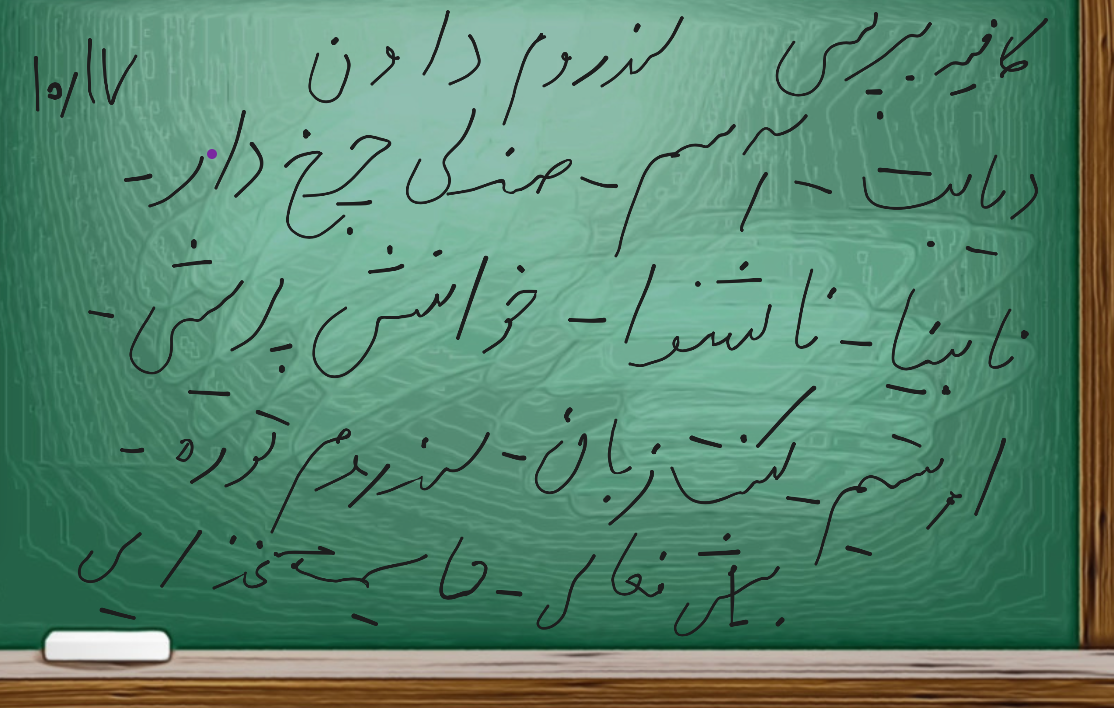 سندروم داون
دیابت - آسم - صندلی چرخ دار -
نابینا - ناشنوا - خوانش پریشی -
اوتیسم - لکنت زبان - سندروم توره -
بیش فعالی - حساسیت غذایی